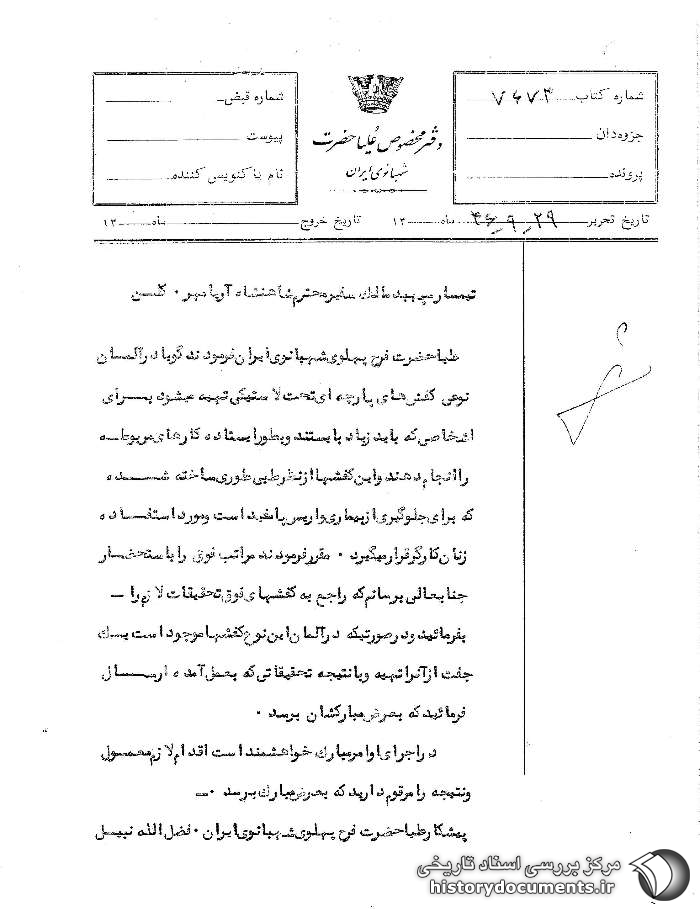 شماره کتاب ۷۶۷۴
جزوه‌دان
پرونده
دفتر مخصوص علیاحضرت
شهبانوی ایران
شماره قبض
پیوست
نام پاکنویس کننده
تاریخ تحریر ۲۹ ماه ۹ ۱۳۴۶ تاریخ خروج ماه ۱۳
تیمسار سپهبد مالک سفیر محترم شاهنشاه آریامهر ۰ کلن
علیاحضرت فرح پهلوی شهبانوی ایران فرمودند گویا در آلمان
نوعی کفش‌های پارچه ای تخت لاستیکی تهیه میشود برای
اشخاصی که باید زیاد بایستند و بطور ایستاده کارهای مربوطه
را انجام دهند و این کفشها از نظر طبی طوری ساخته شده
که برای جلوگیری از بیماری واریس پا مفید است و مورد استفاده
زنان کارگر قرار میگیرد ۰ مقرر فرمودند مراتب فوق را باستحضار
جنابعالی برسانم که راجع به کفشهای فوق تحقیقات لازم را –
بفرمائید و در صورتیکه در آلمان این نوع کفشها موجود است یک
جفت از آنرا تهیه و با نتیجه تحقیقاتی که بعمل آمده ارسال
فرمائید که بعرض مبارکشان برسد ۰
در اجرای اوامر مبارک خواهشمند است اقدام لازم معمول
و نتیجه را مرقوم دارید که بعرض مبارک برسد ۰–
پیشکار علیاحضرت فرح پهلوی شهبانوی ایران ۰ فضل الله نبیل
مرکز بررسی اسناد تاریخی
historydocuments.ir